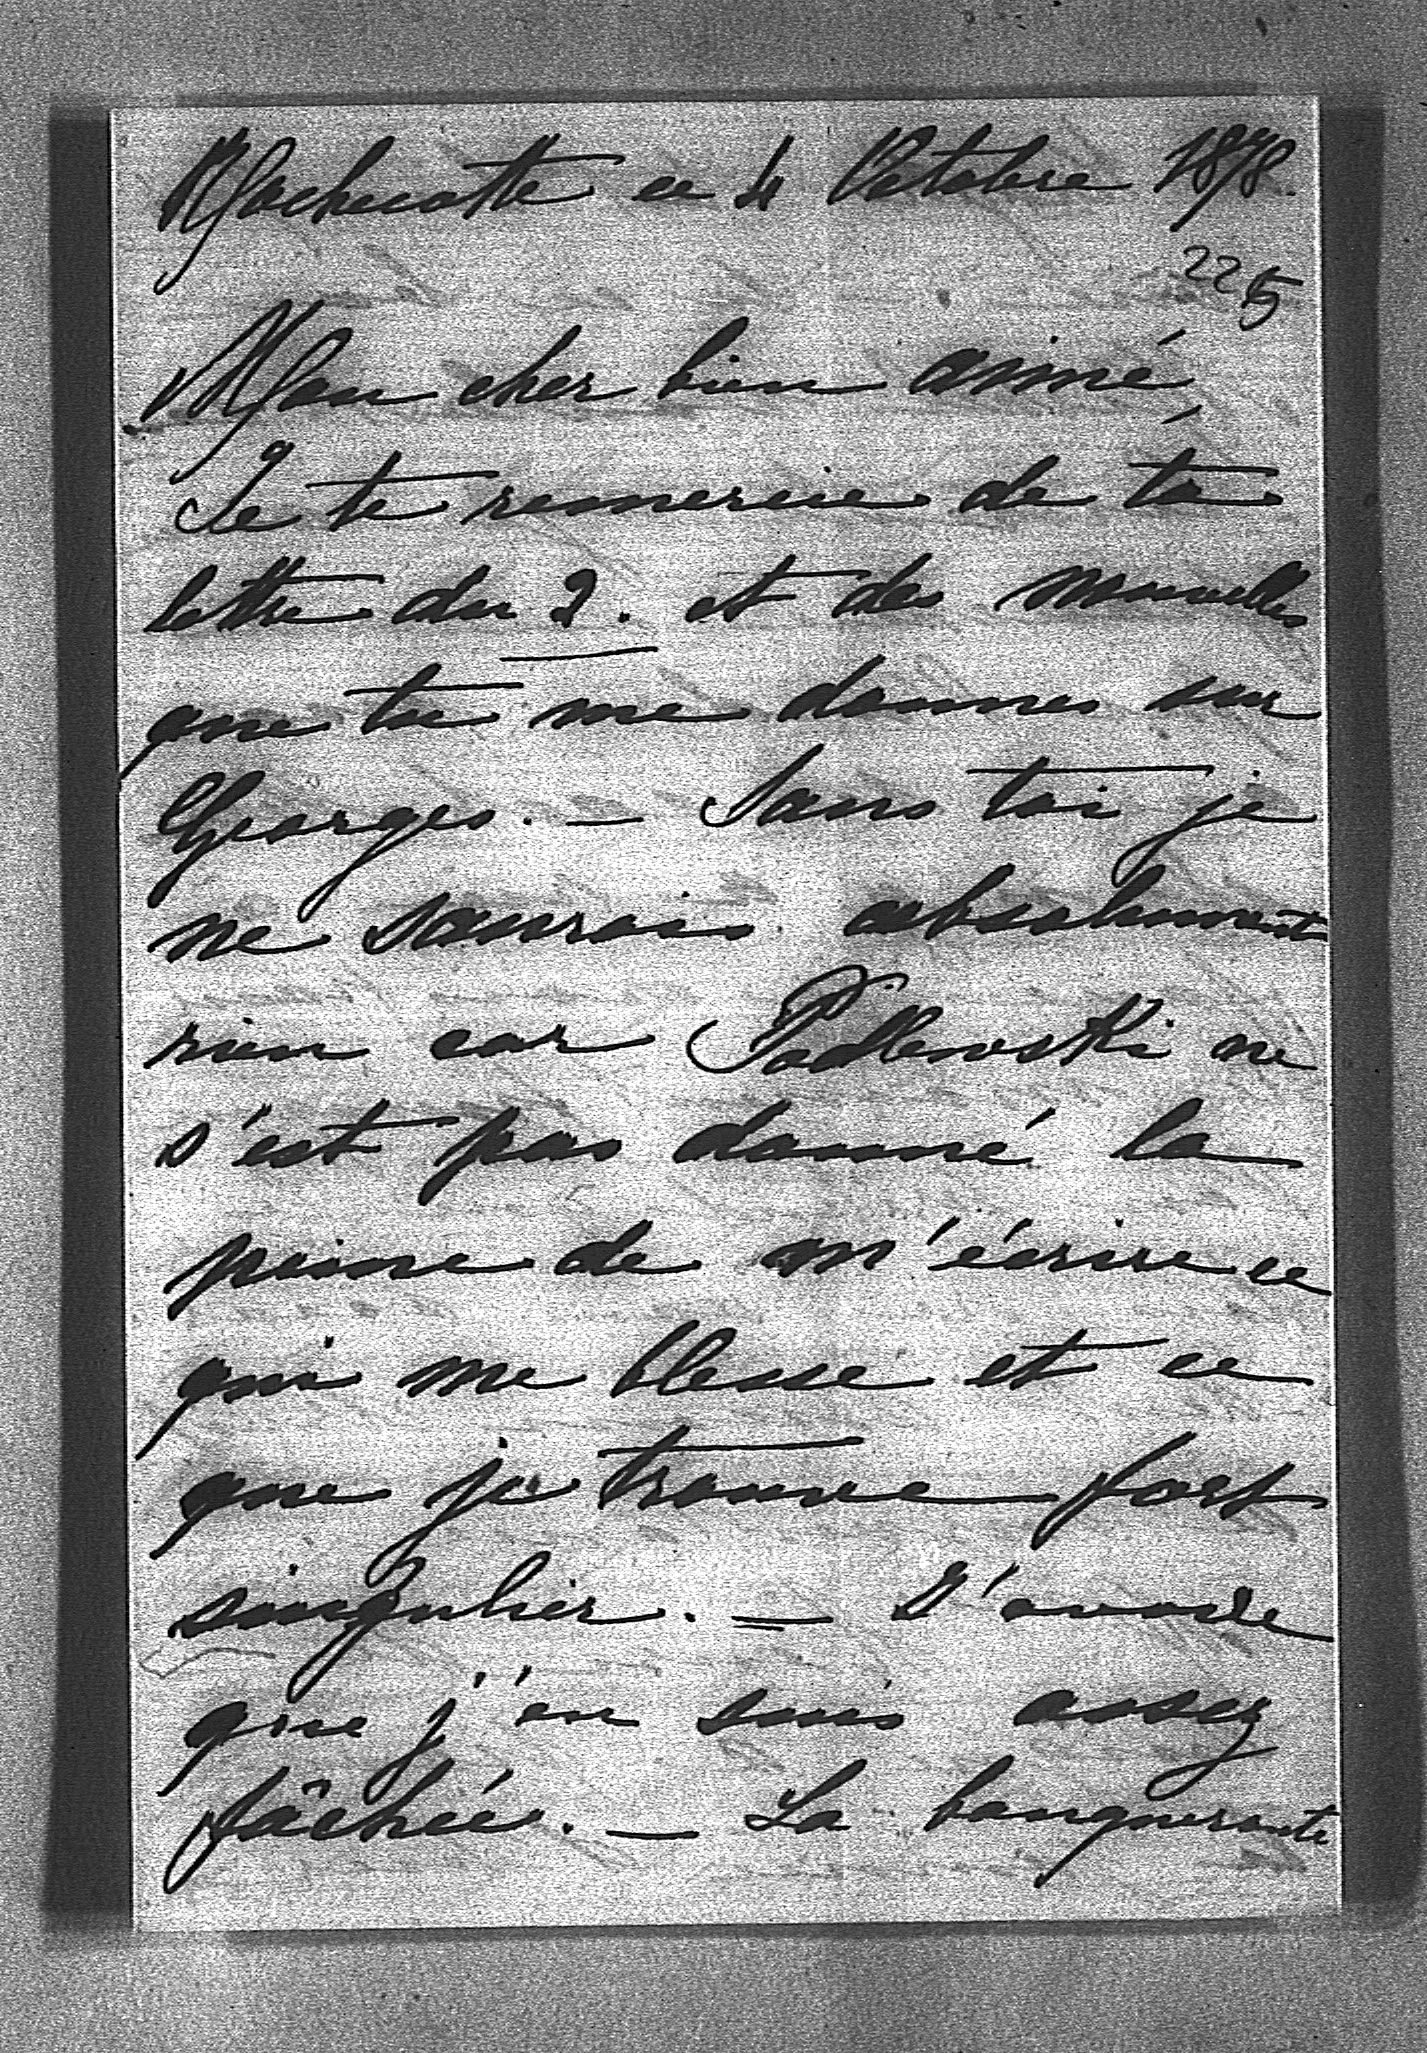 Rochecotte ce 4 Octobre 1878.
225
Mon cher bien aimé,
Je te remercie de ta
lettre du 2. et des nouvelles
que tu me donnes sur
Georges. — Sans toi je
ne saurais absolument
rien car Podlewski ne
s'est pas donné la
peine de m'écrire ce
qui me blesse et ce
que je trouve fort
singulier. — J'avoue
que j'en suis assez
fâchée. — La banqueroute